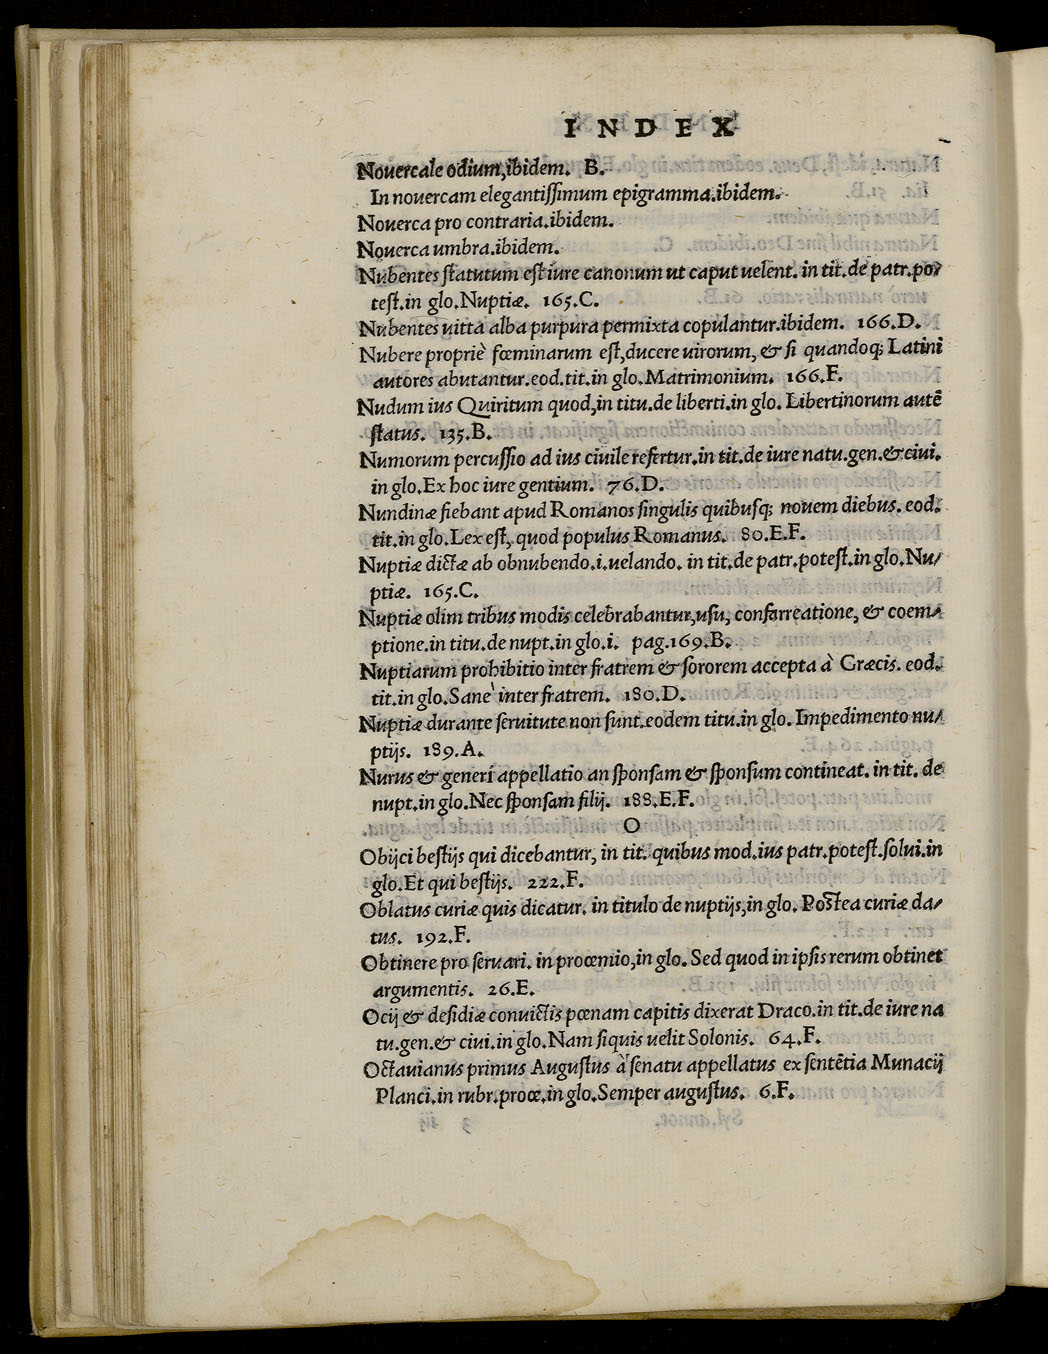 INDEX
Nouercale odium, ibidem. B.
In nouercam elegantiſſimum epigramma.ibidem.
Nouerca pro contraria.ibidem.
Nouerca umbra.ibidem.
Nubentes ſtatutum eſt iure canonum ut caput uelent. in tit.de patr.po/
teſt.in glo.Nuptiæ. 165.C.
Nubentes uitta alba purpura permixta copulantur.ibidem. 166.D.
Nubere propriè fœminarum eſt, ducere uirorum, & ſi quandoq; Latini
autores abutantur.eod.tit.in glo.Matrimonium. 166.F.
Nudum ius Quiritum quod, in titu.de liberti.in glo. Libertinorum autē
ſtatus. 135.B.
Numorum percuſſio ad ius ciuile refertur.in tit.de iure natu.gen.& ciui.
in glo.Ex hoc iure gentium. 76.D.
Nundinæ fiebant apud Romanos ſingulis quibuſq; nouem diebus. eod.
tit.in glo.Lex eſt, quod populus Romanus. 80.E.F.
Nuptiæ dictæ ab obnubendo.i.uelando. in tit.de patr.poteſt.in glo.Nu/
ptiæ. 165.C.
Nuptiæ olim tribus modis celebrabantur, uſu, confarreatione, & coem/
ptione.in titu.de nupt.in glo.i. pag.169.B.
Nuptiarum prohibitio inter fratrem & ſororem accepta à Græcis. eod.
tit.in glo.Sanè inter fratrem. 180.D.
Nuptiæ durante ſeruitute non ſunt.eodem titu.in glo. Impedimento nu/
ptijs. 189.A.
Nurus & generi appellatio an ſponſam & ſponſum contineat. in tit. de
nupt.in glo.Nec ſponſam filij. 188.E.F.
O
Obijci beſtijs qui dicebantur, in tit. quibus mod.ius patr.poteſt.ſolui.in
glo.Et qui beſtijs. 222.F.
Oblatus curiæ quis dicatur. in titulo de nuptijs, in glo. Poſtea curiæ da/
tus. 192.F.
Obtinere pro ſeruari. in proœmio, in glo. Sed quod in ipſis rerum obtinet
argumentis. 26.E.
Ocij & deſidiæ conuictis pœnam capitis dixerat Draco.in tit.de iure na
tu.gen.& ciui.in glo.Nam ſiquis uelit Solonis. 64.F.
Octauianus primus Auguſtus à ſenatu appellatus ex ſentētia Munacij
Planci.in rubr.proœ.in glo.Semper auguſtus. 6.F.